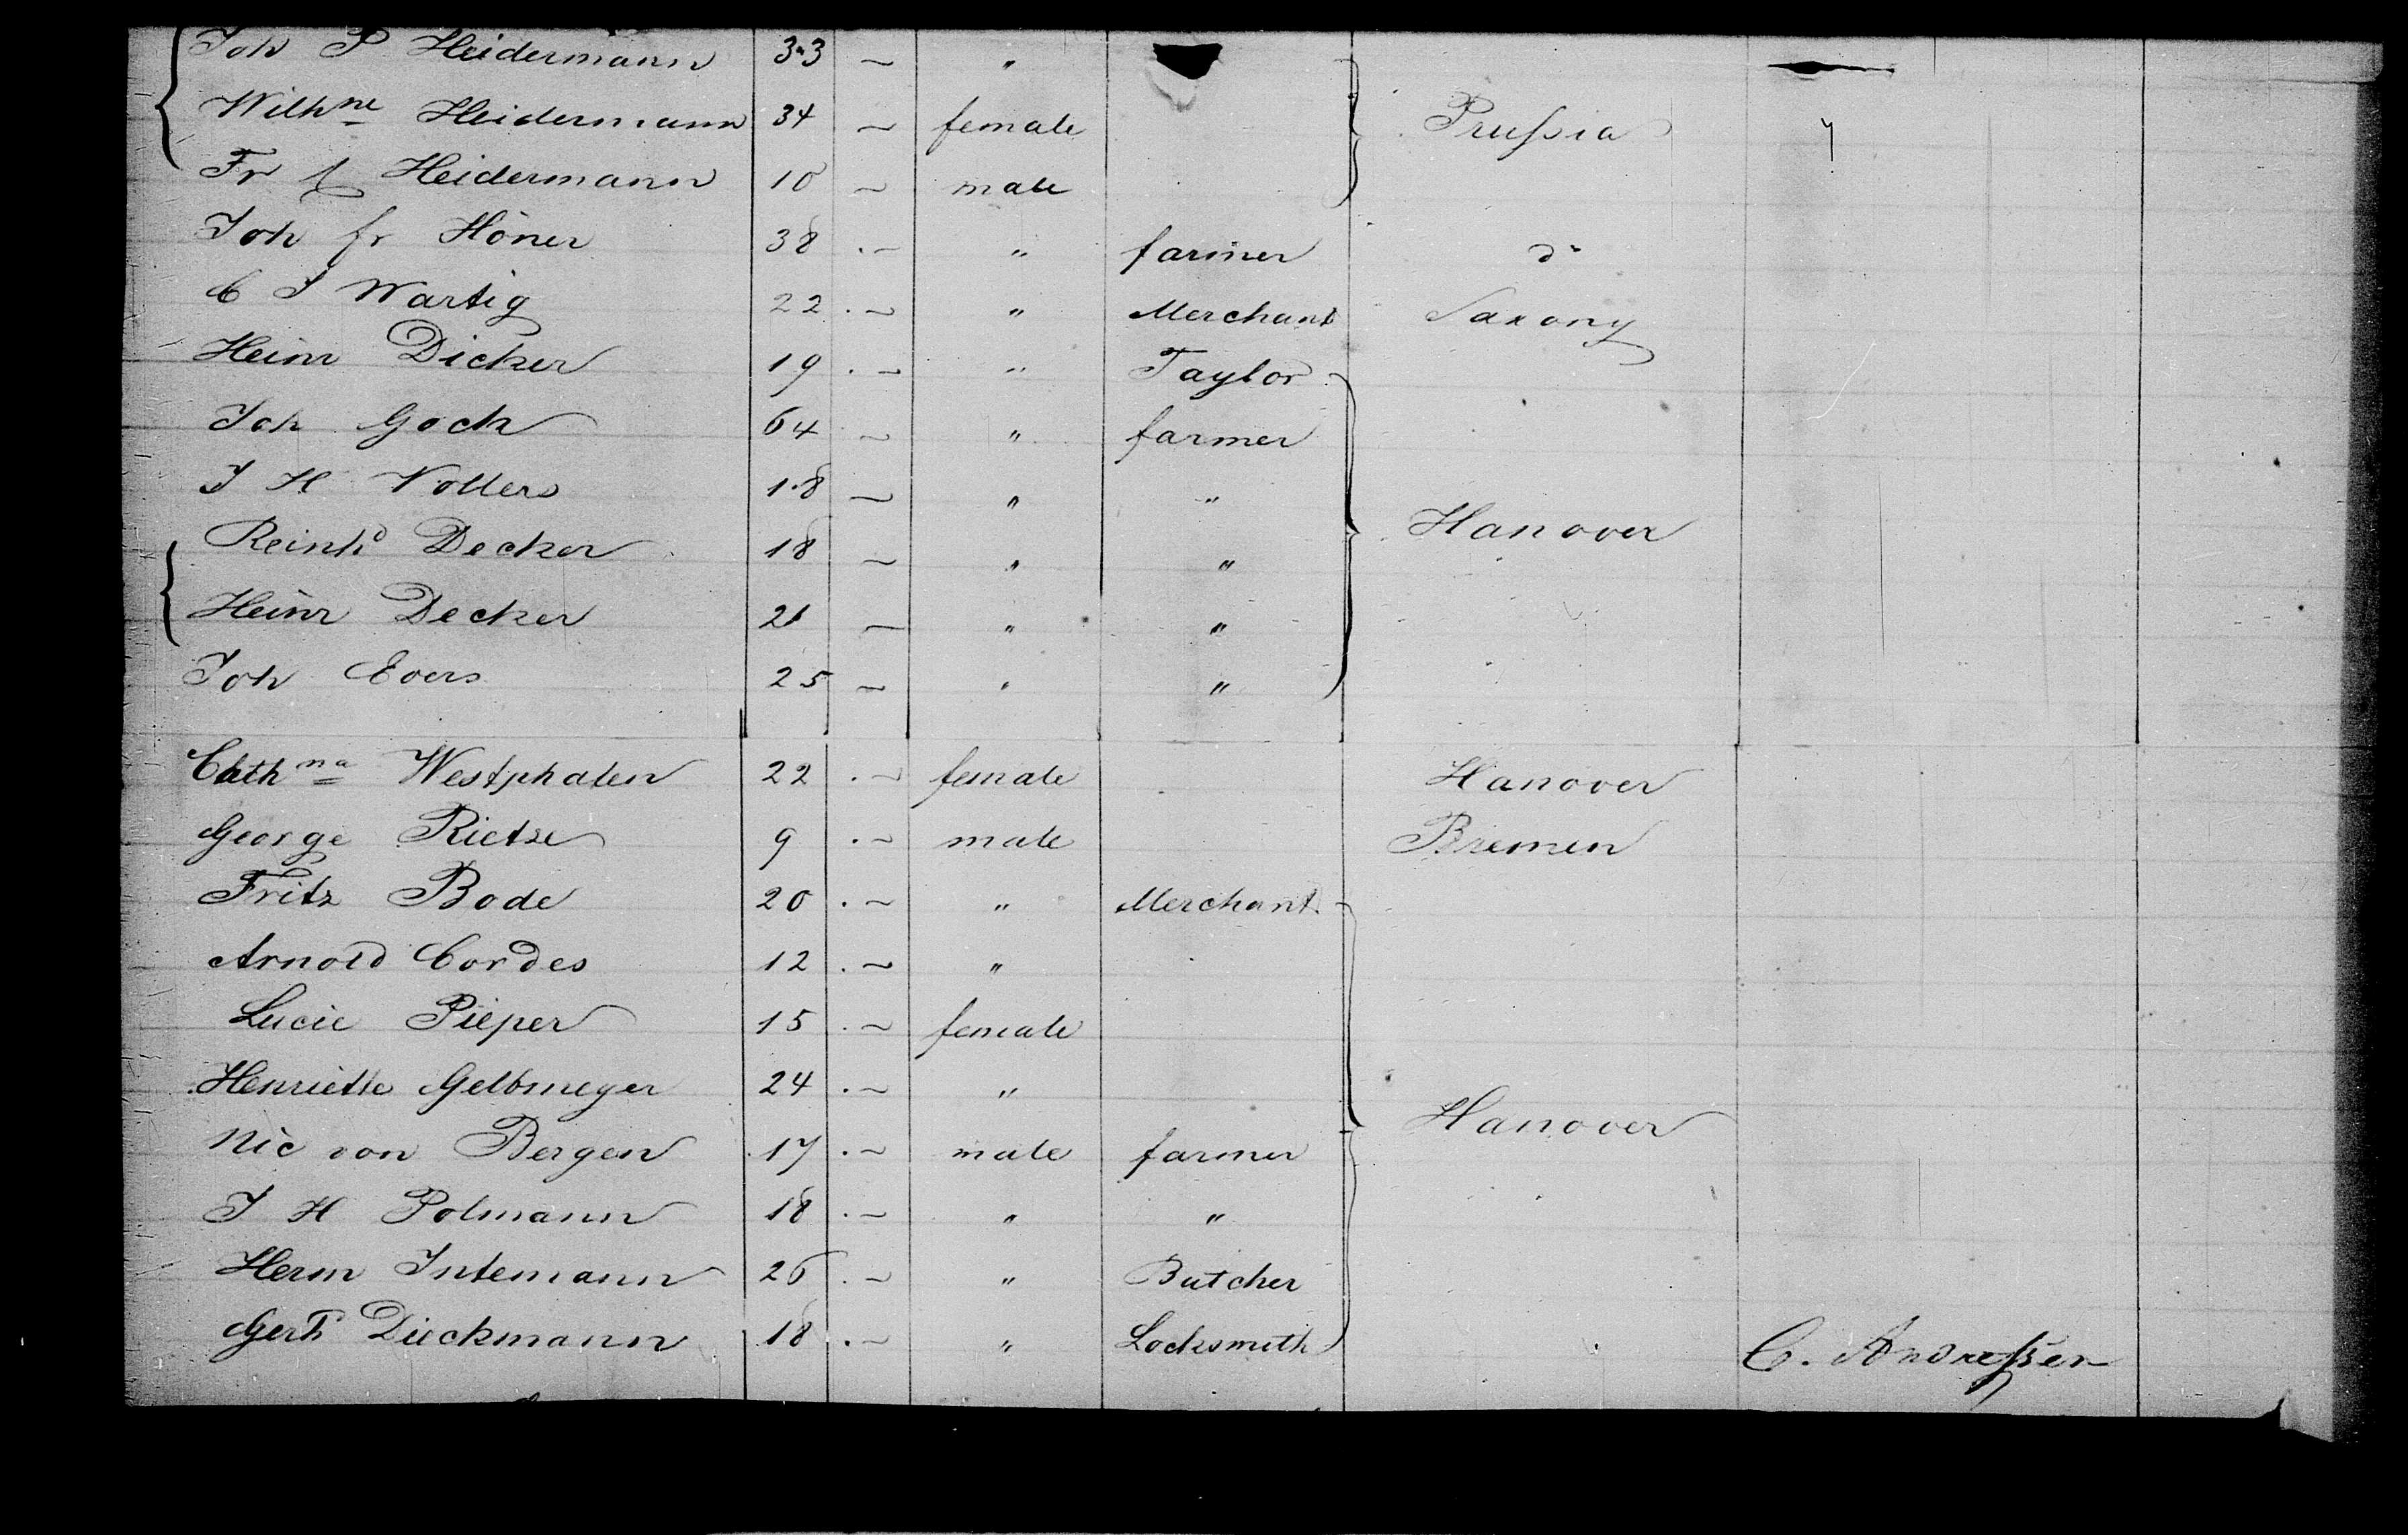 Joh P Heidermann 33 — "
Wilhne Heidermann 34 — female Prussia
Fr Heidermann 10 — male
Joh fr Höner 38 . — " farmer do
C J Wartig 22 . — " Merchant Saxony
Heinr Dicker 19 . — " Taylor
Joh Gock 64 — " farmer
J H Vollers 18 — " "
Reinhd Decker 18 — " " Hanover
Heinr Decker 21 — " "
Joh Evers 25 — " "
Cathna Westphalen 22 . — female Hanover
George Rietze 9 . — male Bremen
Fritz Bode 20 . — " Merchant
Arnold Cordes 12 . — "
Lucie Pieper 15 . — female
Henriette Gelbmeyer 24 . — "
Nic von Bergen 17 . — male farmer Hanover
J H Polmann 18 . — " "
Herm Intemann 26 . — " Butcher
Gerh Dieckmann 18 . — " Locksmith
C. Andreßen